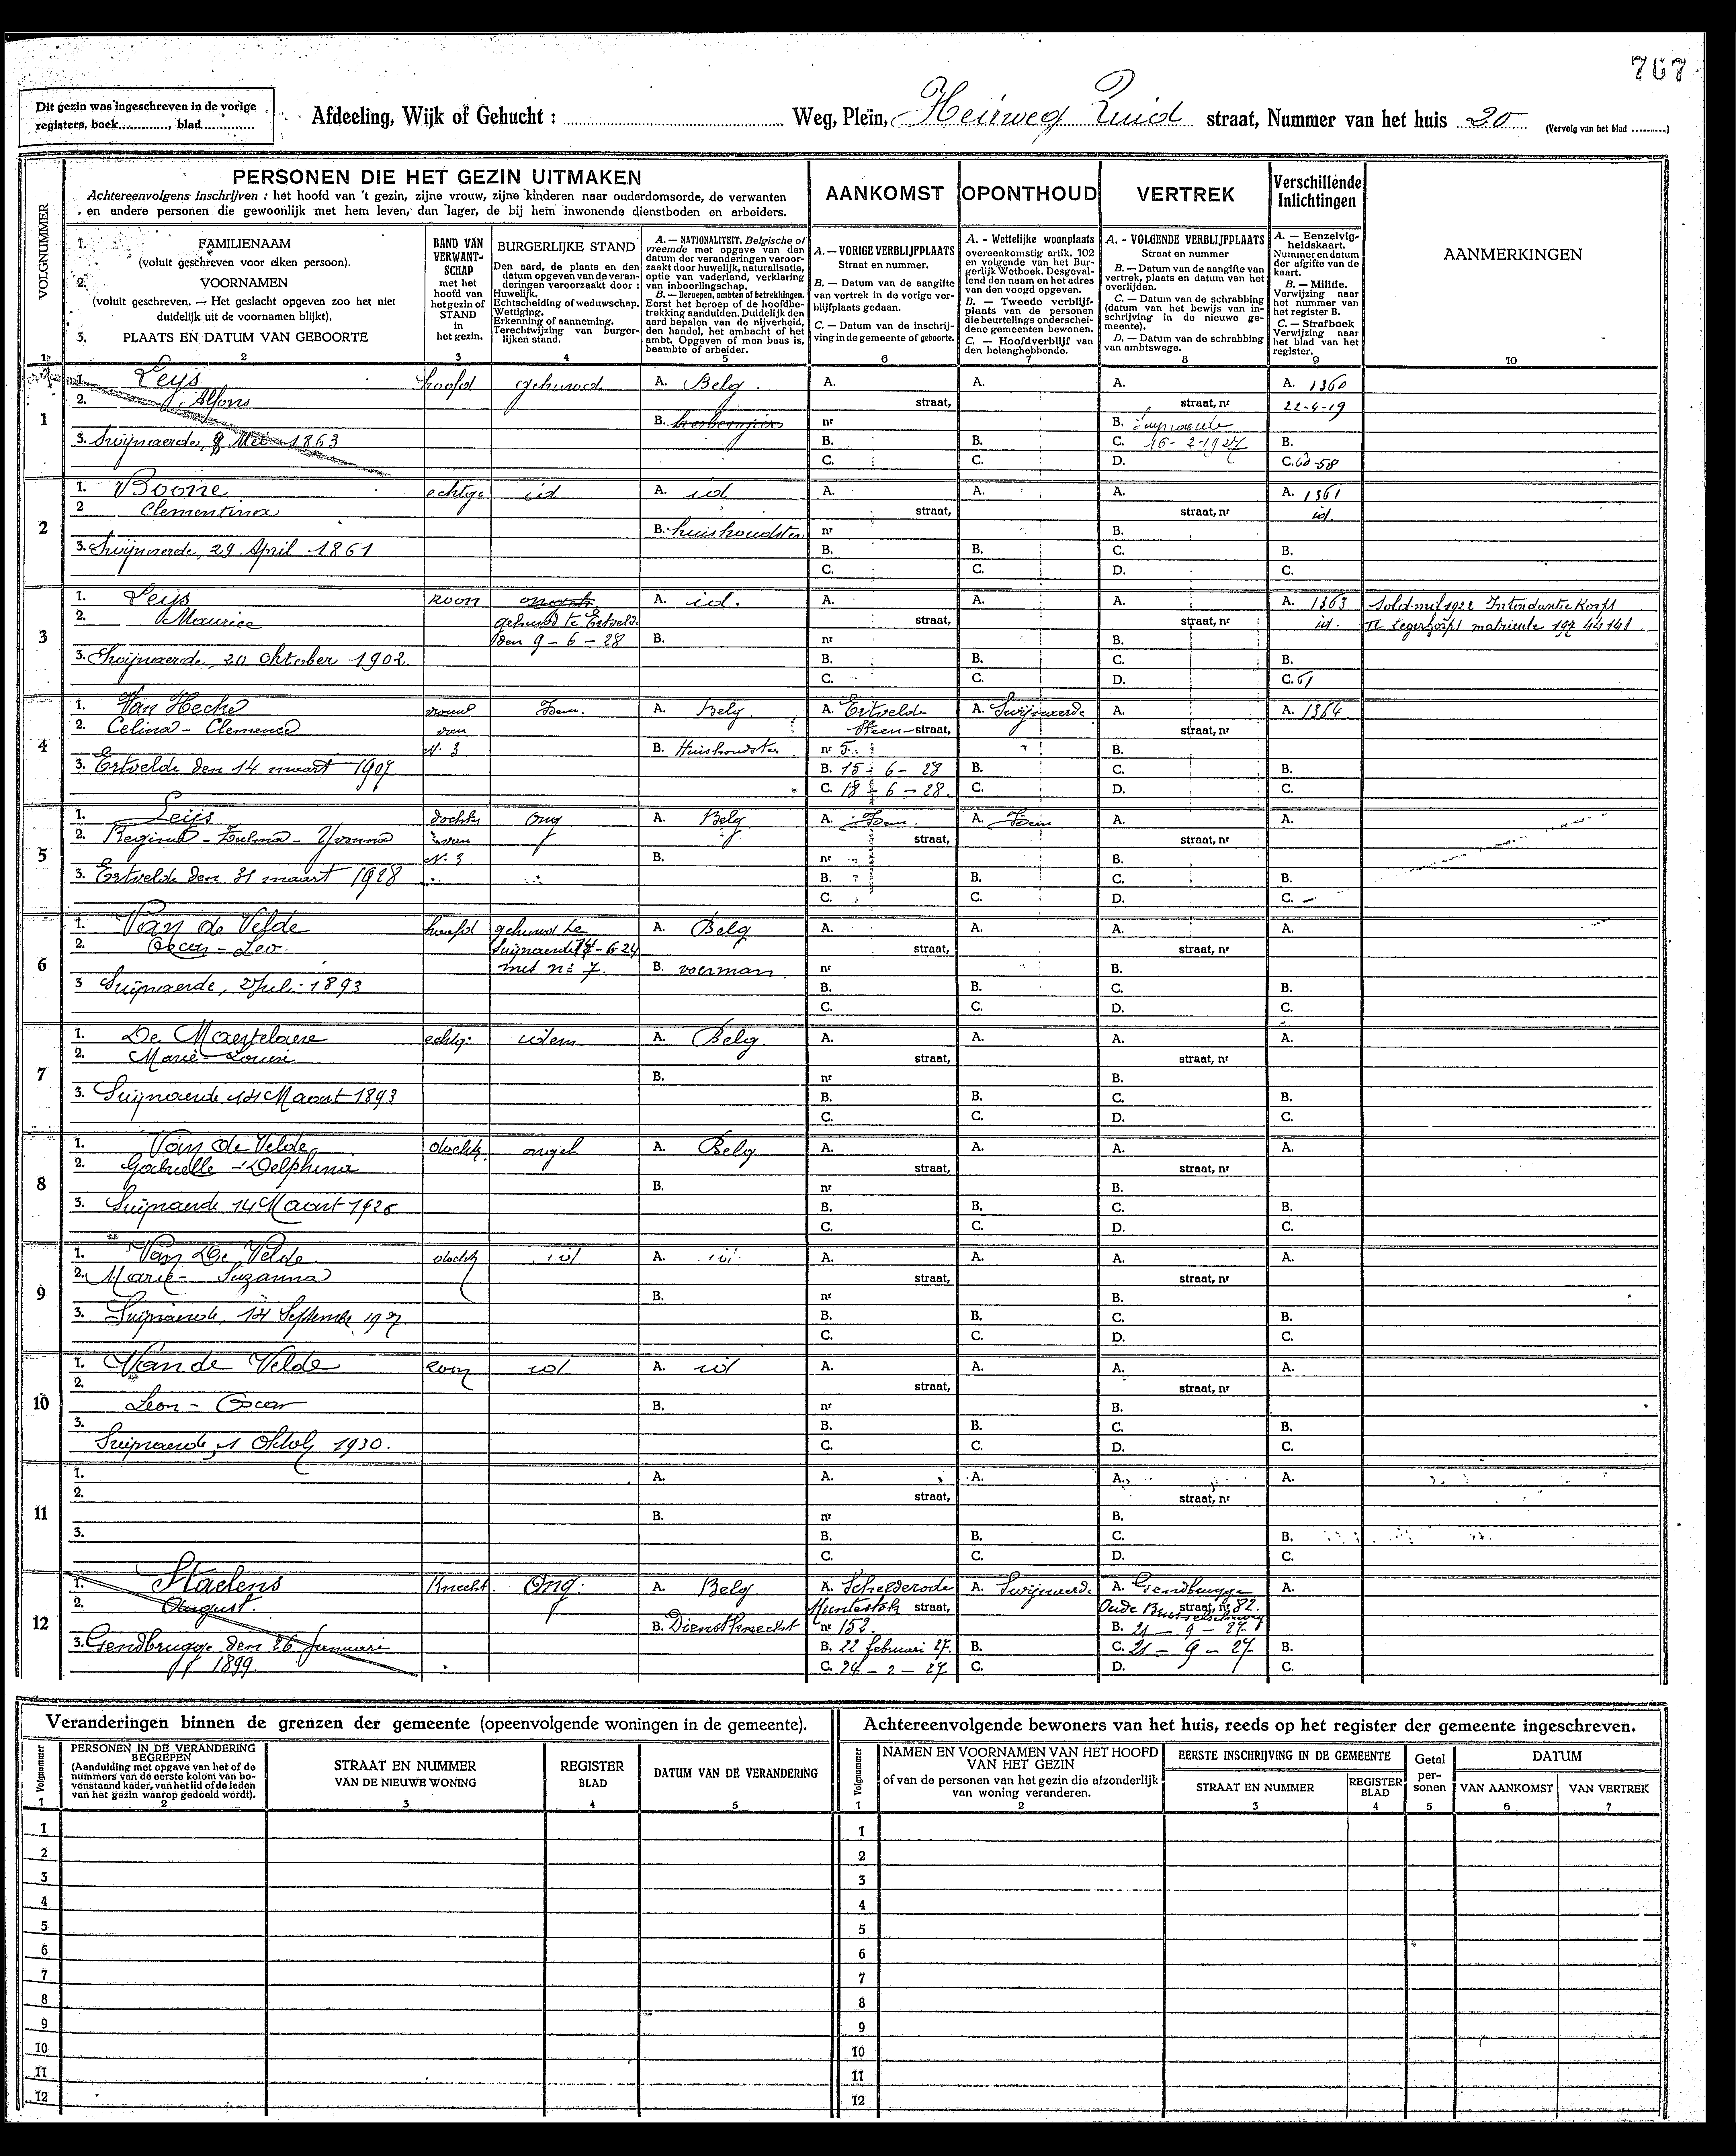 767
Dit gezin was ingeschreven in de vorige
registers, boek............, blad............
Afdeeling, Wijk of Gehucht : ............ Weg, Plein, Heirweg Zuid straat, Nummer van het huis 20 (Vervolg van het blad .........)
VOLGNUMMER
PERSONEN DIE HET GEZIN UITMAKEN
Achtereenvolgens inschrijven : het hoofd van 't gezin, zijne vrouw, zijne kinderen naar ouderdomsorde, de verwanten
en andere personen die gewoonlijk met hem leven, dan lager, de bij hem inwonende dienstboden en arbeiders.
AANKOMST OPONTHOUD VERTREK
Verschillende
Inlichtingen
1. FAMILIENAAM
(voluit geschreven voor elken persoon).
2. VOORNAMEN
(voluit geschreven. — Het geslacht opgeven zoo het niet
duidelijk uit de voornamen blijkt).
3. PLAATS EN DATUM VAN GEBOORTE
BAND VAN
VERWANT-
SCHAP
met het
hoofd van
het gezin of
STAND
in
het gezin.
BURGERLIJKE STAND
Den aard, de plaats en den
datum opgeven van de veran-
deringen veroorzaakt door :
Huwelijk.
Echtscheiding of weduwschap.
Wettiging.
Erkenning of aanneming.
Terechtwijzing van burger-
lijken stand.
A. — NATIONALITEIT. Belgische of
vreemde met opgave van den
datum der veranderingen veroor-
zaakt door huwelijk, naturalisatie,
optie van vaderland, verklaring
van inboorlingschap.
B. — Beroepen, ambten of betrekkingen.
Eerst het beroep of de hoofdbe-
trekking aanduiden. Duidelijk den
aard bepalen van de nijverheid,
den handel, het ambacht of het
ambt. Opgeven of men baas is,
beambte of arbeider.
A. — VORIGE VERBLIJFPLAATS
Straat en nummer.
B. — Datum van de aangifte
van vertrek in de vorige ver-
blijfplaats gedaan.
C. — Datum van de inschrij-
ving in de gemeente of geboorte.
A. - Wettelijke woonplaats
overeenkomstig artik. 102
en volgende van het Bur-
gerlijk Wetboek. Desgeval-
lend den naam en het adres
van den voogd opgeven.
B. — Tweede verblijf-
plaats van de personen
die beurtelings onderschei-
dene gemeenten bewonen.
C. — Hoofdverblijf van
den belanghebbende.
A. - VOLGENDE VERBLIJFPLAATS
Straat en nummer
B. — Datum van de aangifte van
vertrek, plaats en datum van het
overlijden.
C. — Datum van de schrabbing
(datum van het bewijs van in-
schrijving in de nieuwe ge-
meente).
D. — Datum van de schrabbing
van ambtswege.
A. — Eenzelvig-
heidskaart.
Nummer en datum
der afgifte van de
kaart.
B. — Militie.
Verwijzing naar
het nummer van
het register B.
C. — Strafboek
Verwijzing naar
het blad van het
register.
AANMERKINGEN
1 2 3 4 5 6 7 8 9 10
1
1. Leys hoofd gehuwd A. Belg. A. A. A. A. 1360
2. Alfons straat, straat, nr 22-4-19
B. nr B.
3. Swijnaerde, 8 Mei 1863 B. B. C. 16-2-1927 B.
C. C. D. C. 60-58
2
1. Boone echtge id A. id A. A. A. A. 1361
2 Clementina straat, straat, nr id.
B. huishoudster nr B.
3. Swijnaerde, 29 April 1861 B. B. C. B.
C. C. D. C.
3
1. Leys zoon ongeh. A. id. A. A. A. A. 1363 Sold. mil 1922 Intendantie Korps
2. Maurice gehuwd te Ertvelde straat, straat, nr id. II Legerkorps matricule 197.44141
den 9-6-28 B. nr B.
3. Swijnaerde, 20 Oktober 1902. B. B. C. B.
C. C. D. C. 61
4
1. Van Hecke vrouw Idem. A. Belg. A. Ertvelde A. Swijnaerde A. A. 1364
2. Celina - Clemence van Steen-straat, straat, nr
N. 3 B. Huishoudster nr 5. B.
3. Ertvelde den 14 maart 1907 B. 15-6-28 B. C. B.
C. 18-6-28. C. D. C.
5
1. Leijs dochter Ong A. Belg A. Idem A. Idem A. A.
2. Regina - Zulma - Yvonna van straat, straat, nr
N. 3 B. nr B.
3. Ertvelde den 31 maart 1928 B. B. C. B.
C. C. D. C.
6
1. Van de Velde hoofd gehuwd te A. Belg A. A. A. A.
2. Oscar - Leo. Suijnaerde 14-6-24 straat, straat, nr
met n: 7. B. voerman nr B.
3 Suijnaerde, 2 Juli 1893 B. B. C. B.
C. C. D. C.
7
1. De Maertelaere echtg. idem A. Belg. A. A. A. A.
2. Marie - Louise straat, straat, nr
B. nr B.
3. Suijnaerde 14 Maart 1893 B. B. C. B.
C. C. D. C.
8
1. Van de Velde docht. ongeh. A. Belg A. A. A. A.
2. Gabrielle - Delphina straat, straat, nr
B. nr B.
3. Suijnaerde 14 Maart 1926 B. B. C. B.
C. C. D. C.
9
1. Van De Velde docht id A. id A. A. A. A.
2. Marie - Suzanna straat, straat, nr
B. nr B.
3. Suijnaerde, 14 September 1927 B. B. C. B.
C. C. D. C.
10
1. Van de Velde zoon id A. id A. A. A. A.
2. straat, straat, nr
Leon - Oscar B. nr B.
3. B. B. C. B.
Suijnaerde, 1 Oktob 1930. C. C. D. C.
11
1. A. A. A. A. A.
2. straat, straat, nr
B. nr B.
3. B. B. C. B.
C. C. D. C.
12
1. Staelens Knecht. Ong. A. Belg A. Schelderode A. Swijnaerde A. Gendbrugge A.
2. August. Muntestok straat, Oude Brusselscheweg straat, nr 82.
B. Dienstknecht nr 152. B. 21-9-27
3. Gendbrugge den 26 Januari B. 22 februari 27. B. C. 21-9-27 B.
1899. C. 24-2-27 C. D. C.
Veranderingen binnen de grenzen der gemeente (opeenvolgende woningen in de gemeente).
Volgnummer
PERSONEN IN DE VERANDERING
BEGREPEN
(Aanduiding met opgave van het of de
nummers van de eerste kolom van bo-
venstaand kader, van het lid of de leden
van het gezin waarop gedoeld wordt).
STRAAT EN NUMMER
VAN DE NIEUWE WONING
REGISTER
BLAD
DATUM VAN DE VERANDERING
1 2 3 4 5
1
2
3
4
5
6
7
8
9
10
11
12
Achtereenvolgende bewoners van het huis, reeds op het register der gemeente ingeschreven.
Volgnummer
NAMEN EN VOORNAMEN VAN HET HOOFD
VAN HET GEZIN
of van de personen van het gezin die afzonderlijk
van woning veranderen.
EERSTE INSCHRIJVING IN DE GEMEENTE
STRAAT EN NUMMER
REGISTER
BLAD
Getal
per-
sonen
DATUM
VAN AANKOMST VAN VERTREK
1 2 3 4 5 6 7
1
2
3
4
5
6
7
8
9
10
11
12